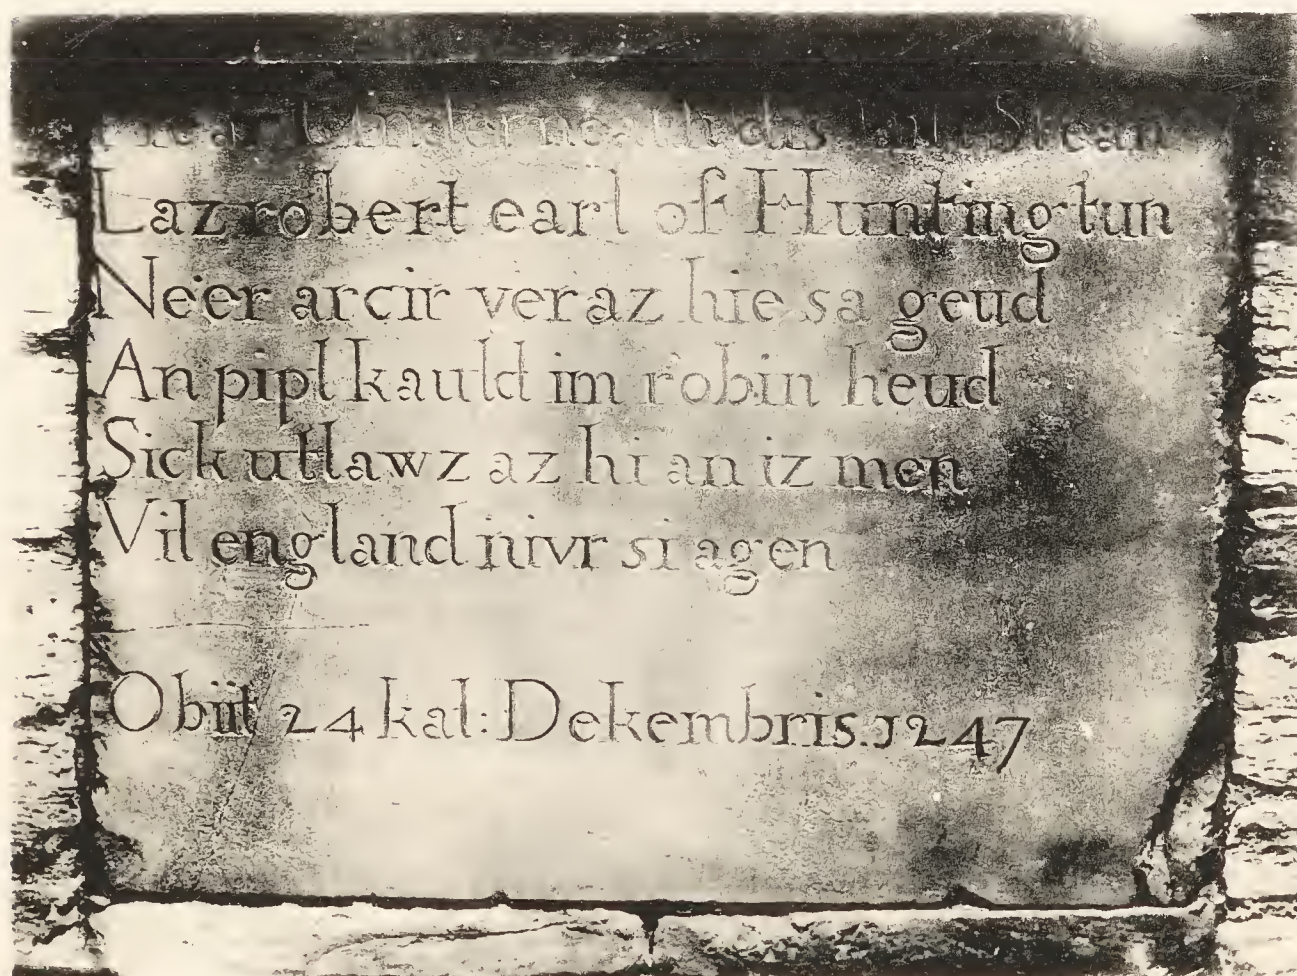 Hear Underneath dis laitl Stean
Laz robert earl of Huntingtun
Ne'er arcir ver az hie sa geud
An pipl kauld im robin heud
Sick utlawz az hi an iz men
Vil england nivr si agen
Obiit 24 kal: Dekembris. 1247